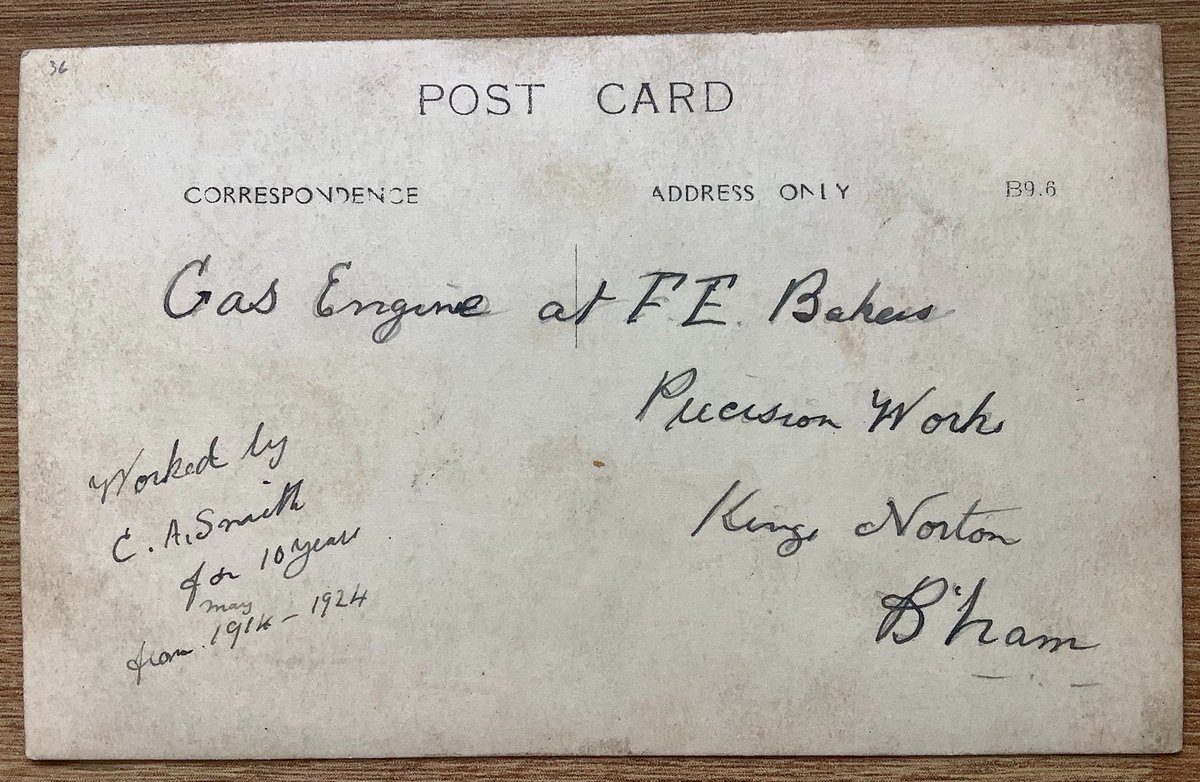 36
POST CARD
CORRESPONDENCE
ADDRESS ONLY
B9.6
Gas Engine at F. E. Bakers
Precision Works
Kings Norton
B'ham
Worked by
C. A. Smith
for 10 years
may
from 1914 - 1924